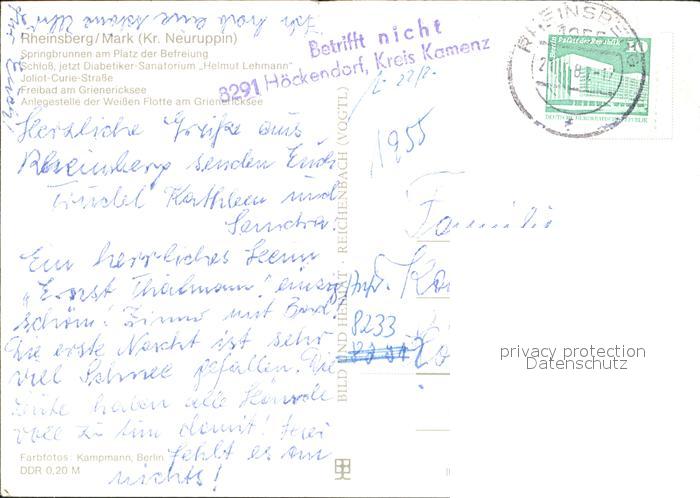 Ich hab eine schöne Uhr
Rheinsberg/Mark (Kr. Neuruppin)
Springbrunnen am Platz der Befreiung
Schloß, jetzt Diabetiker-Sanatorium „Helmut Lehmann"
Joliot-Curie-Straße
Freibad am Grienericksee
Anlegestelle der Weißen Flotte am Grienericksee
Betrifft nicht
8291 Höckendorf, Kreis Kamenz
RHEINSBERG
1955
Berlin, Palast der Republik
10
DEUTSCHE DEMOKRATISCHE REPUBLIK
Herzliche Grüße aus
Rheinsberg senden Euch
Trudel Kathleen und
Sandra.
Ein herrliches Heim
„Ernst Thälmann" einzig
schön! Zimmer mit Bad.
Die erste Nacht ist sehr
viel Schnee gefallen. Die
Leute haben alle Hände
voll zu tun damit! Hier
fehlt es an
nichts!
1955
Familie
8233
BILD UND HEIMAT · REICHENBACH (VOGTL)
Farbfotos: Kampmann, Berlin
DDR 0,20 M
privacy protection
Datenschutz